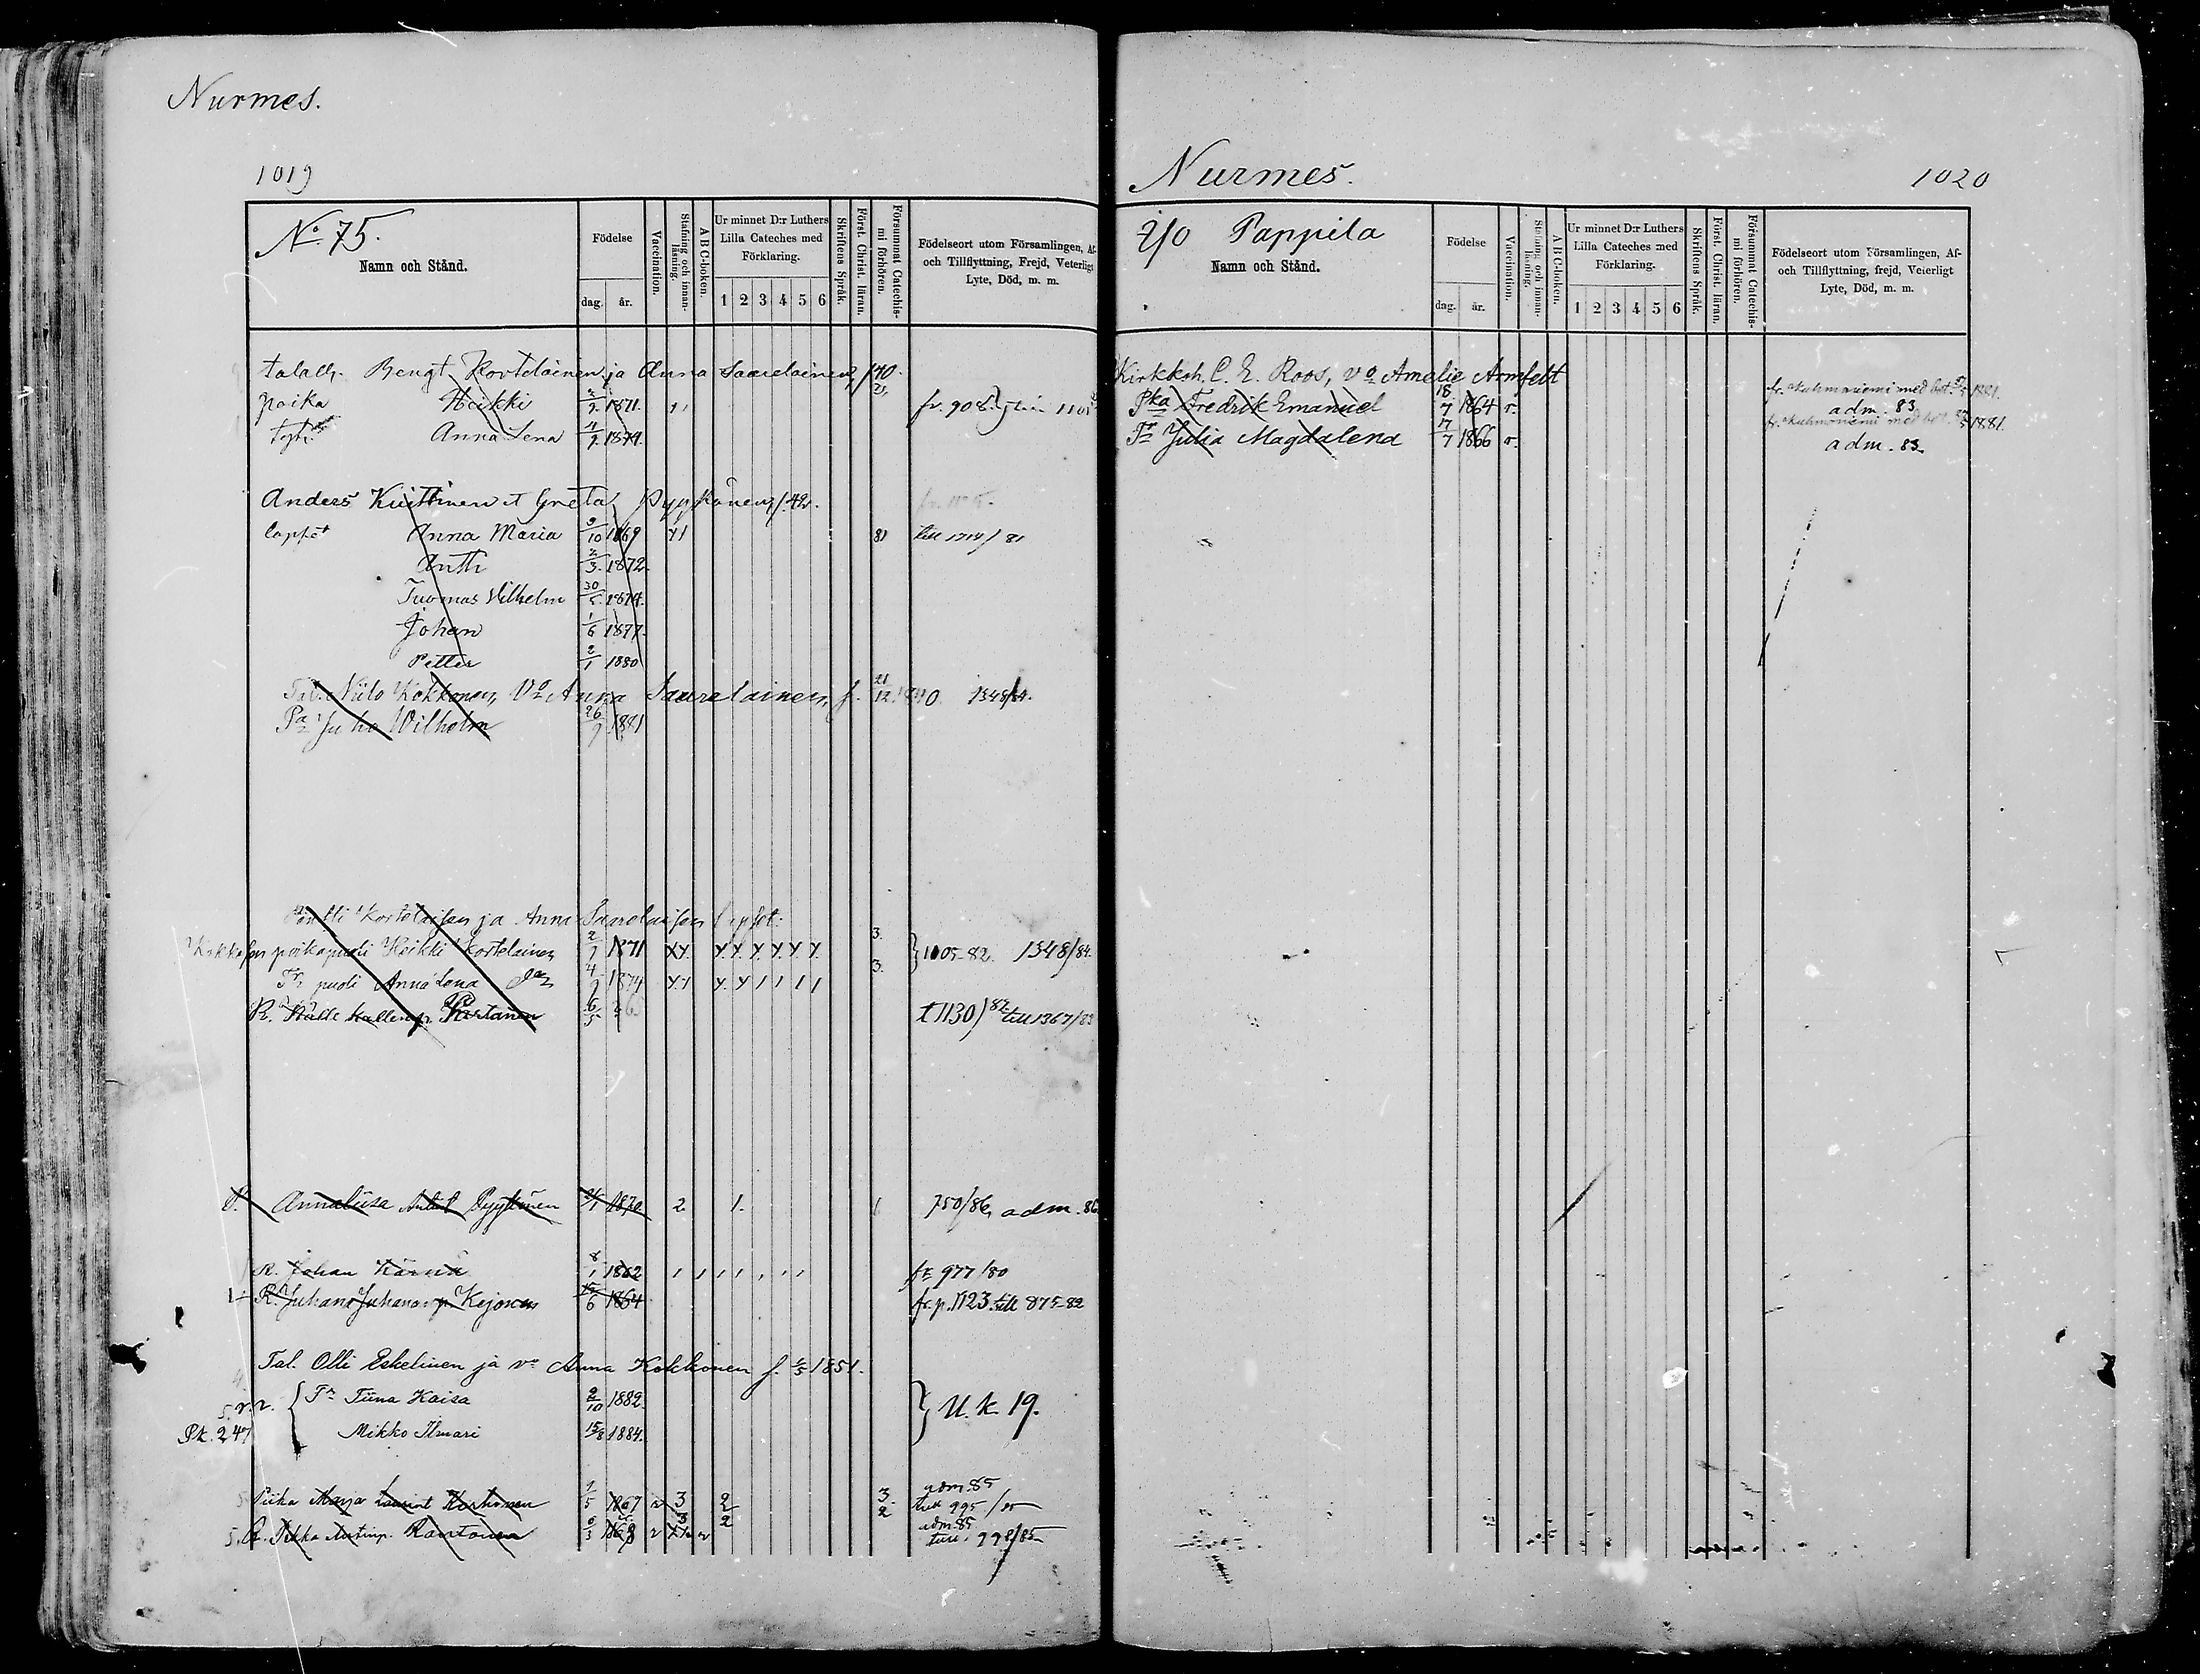 Nurmes.
1019
No 75.
Namn och Stånd.
Födelse
dag. år.
Vaccination.
Stafning och innan-läsning.
A B C-boken.
Ur minnet D:r Luthers Lilla Cateches med Förklaring.
1 2 3 4 5 6
Skriftens Språk.
Först. Christ. läran.
Försummat Catechis-mi förhören.
Födelseort utom Församlingen, Af-
och Tillflyttning, Frejd, Veterligt
Lyte, Död, m. m.
Bengt Kortelainen ja Anna Saarelainen, f 40.
poika Heikki 2/7 1871. fr. 908.
Anna Lena 4/9 1874.
Anders Kuittinen et Greta Pyykönen, f. 42.
lapset Anna Maria 9/10 1869 81 till 1714/81
Antti 2/3 1872.
Tuomas Vilhelm 30/5 1874.
Johan 1/6 1877.
Petter 2/1 1880
Tal. Niilo Kokkonen, Vo Anna Saarelainen, f. 21/12 1840 1348/84.
Pa Juho Wilhelm 26/9 1881
Pentti Kortelaisen ja Anna Saarelaisen lapset:
Kokkosen poikapuoli Heikki Kortelainen 2/7 1871 3. 1105-82. 1348/84.
Tr puoli Anna Lena 4/9 1874 3.
R. Kallenp. 6/5 t 1130)82 till 1367/83
Annaliisa Pyykönen 1870. 2 1. 750/86, adm. 86
R. Johan Kärnä 8/1 1862 fr 977/80
R. Juhana Juhananp. Kejonen 6 1864 fr. p. 1123 till 875-82
Tal. Olli Eskelinen ja vo Anna Kokkonen f. 1851.
Tr Tiina Kaisa 2/10 1882.
U. k. 19.
Pk. 247 Mikko Ilmari 15/8 1884.
Piika Marja Laurint Korhonen 5 1867 3 2 3. adm. 85
till 995/85
R. Pekka Antinp. 2 2 adm. 85
till. 998/85
Nurmes.
1020
2/0 Pappila
Namn och Stånd.
Födelse
dag. år.
Vaccination.
Stafning och innan-läsning.
A B C-boken.
Ur minnet D:r Luthers Lilla Cateches med Förklaring.
1 2 3 4 5 6
Skriftens Språk.
Först. Christ. läran.
Försummat Catechis-mi förhören.
Födelseort utom Församlingen, Af-
och Tillflyttning, frejd, Veterligt
Lyte, Död, m. m.
Kirkkoh. C. E. Roos, vo Amelie Armfelt
Pka Fredrik Emanuel 18/7 1864 v. fr. Kuhmoniemi med bet. 1881.
adm. 83
Tr Julia Magdalena 17/7 1866 v. fr. Kuhmoniemi med bet. 1881.
adm. 83